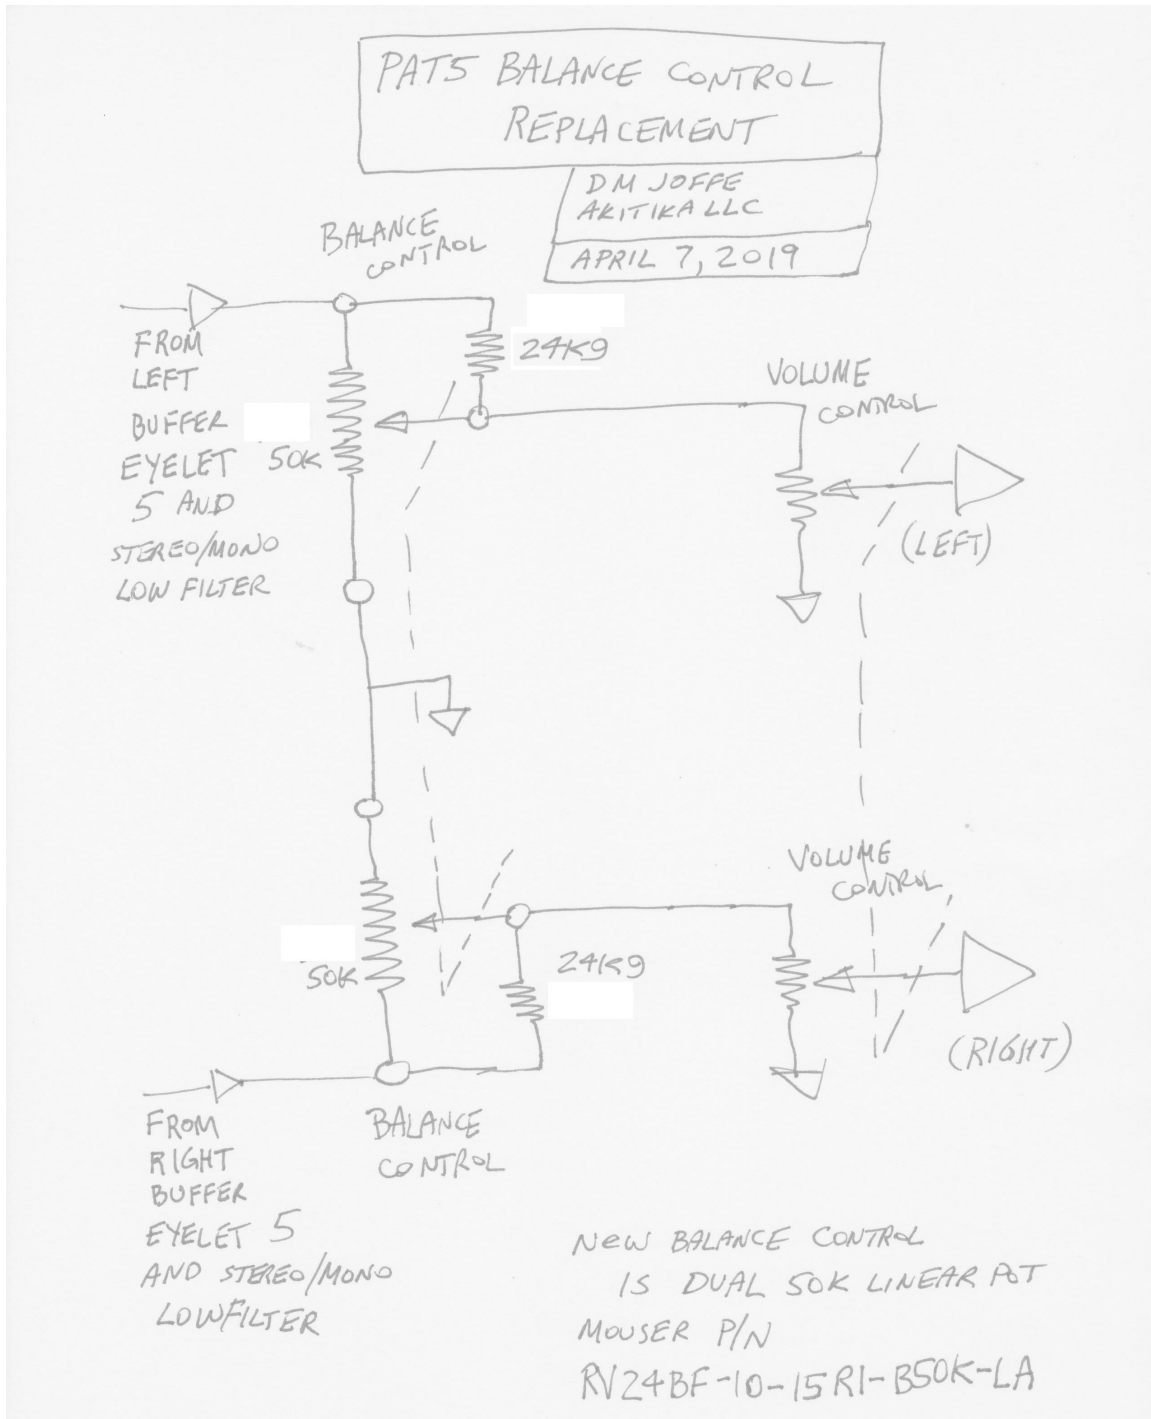 PAT5 BALANCE CONTROL
REPLACEMENT
DM JOFFE
AKITIKA LLC
APRIL 7, 2019
BALANCE
CONTROL
FROM
LEFT
BUFFER
EYELET
5 AND
STEREO/MONO
LOW FILTER
50K
24K9
VOLUME
CONTROL
(LEFT)
VOLUME
CONTROL
50K
24K9
(RIGHT)
FROM
RIGHT
BUFFER
EYELET 5
AND STEREO/MONO
LOWFILTER
BALANCE
CONTROL
NEW BALANCE CONTROL
IS DUAL 50K LINEAR POT
MOUSER P/N
RV24BF-10-15R1-B50K-LA